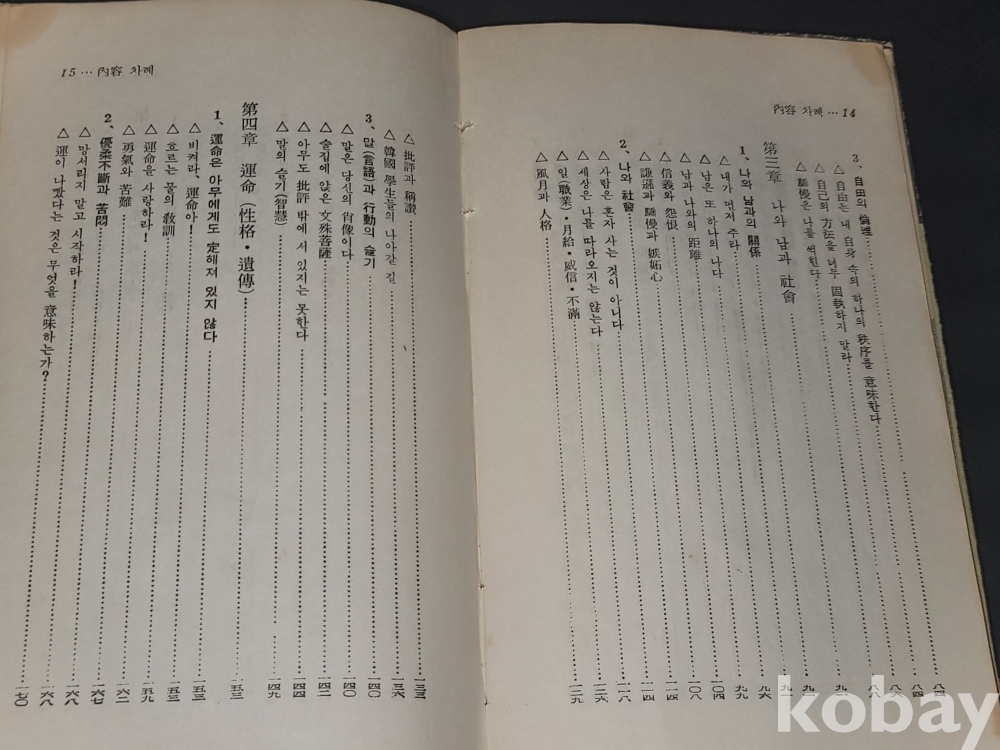 內容 차례 … 14
3、自由의 倫理
△ 自由는 내 自身 속의 하나의 秩序를 意味한다
△ 自己의 方法을 너무 固執하지 말라
△ 驕慢은 나를 썩힌다
第三章 나와 남과 社會
1、나와 남과의 關係
△ 내가 먼저 주라
△ 남은 또 하나의 나다
△ 남과 나와의 距離
△ 信義와 怨恨
△ 謙遜과 驕慢과 嫉妬心
2、나와 社會
△ 사람은 혼자 사는 것이 아니다
△ 세상은 나를 따라오지는 않는다
△ 일(職業)・月給・威信・不滿 一二六
△ 風月과 人格 一二九
15 … 內容 차례
△ 批評과 稱讚 一三三
△ 韓國 學生들의 나아갈 길 一三六
3、말(言語)과 行動의 슬기 一四〇
△ 말은 당신의 肖像이다 一四〇
△ 술집에 앉은 文殊菩薩 一四二
△ 아무도 批評 밖에 서 있지는 못한다 一四四
△ 말의 슬기(智慧) 一四九
第四章 運命(性格・遺傳) 一五三
1、運命은 아무에게도 定해져 있지 않다
△ 비켜라、運命아! 一五三
△ 흐르는 물의 敎訓 一五三
△ 運命을 사랑하라! 一五九
△ 勇氣와 苦難 一六二
2、優柔不斷과 苦悶 一六七
△ 망서리지 말고 시작하라! 一六八
△ 運이 나빴다는 것은 무엇을 意味하는가? 一七〇
kobay